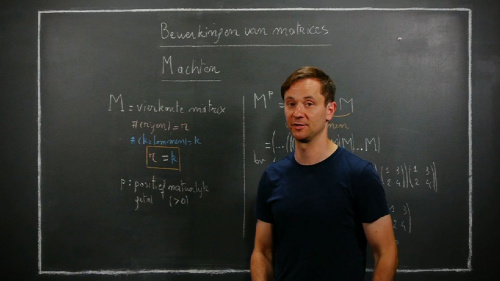 Bewerkingen van matrices
Machten
M = vierkante matrix
#(rijen) = r
#(kolommen) = k
r = k
p : positief natuurlijk
getal (>0)
M^p =
M
bv = (...((
M)...M)
1 3
2 4
1 3
2 4